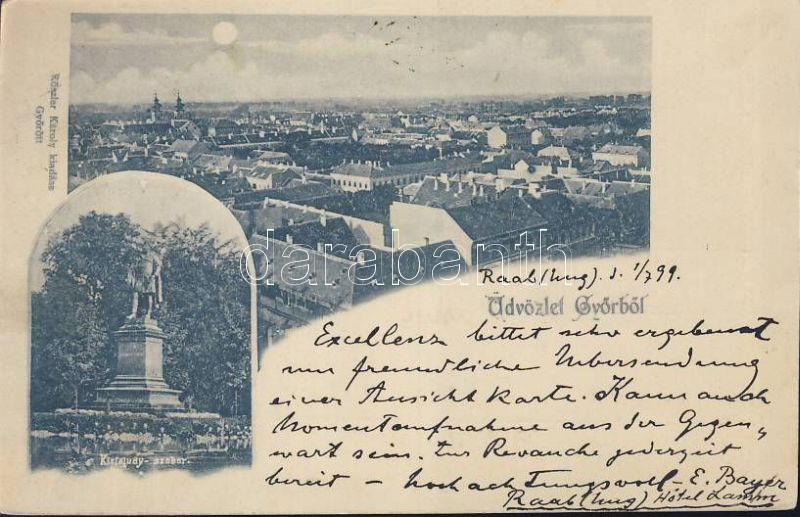 Rószler Károly kiadása
Győrött
darabanth.com
Raab (Ung). d. 1/7 99.
Üdvözlet Győrből
Excellenz bittet sehr ergebenst
um freundliche Uebersendung
einer Ansichtkarte. Kann auch
Momentaufnahme aus der Gegen„
wart sein. Zur Revanche jederzeit
bereit – hochachtungsvoll – E. Bayer
Raab (Ung) Hôtel Lamm
Kisfaludy-szobor.